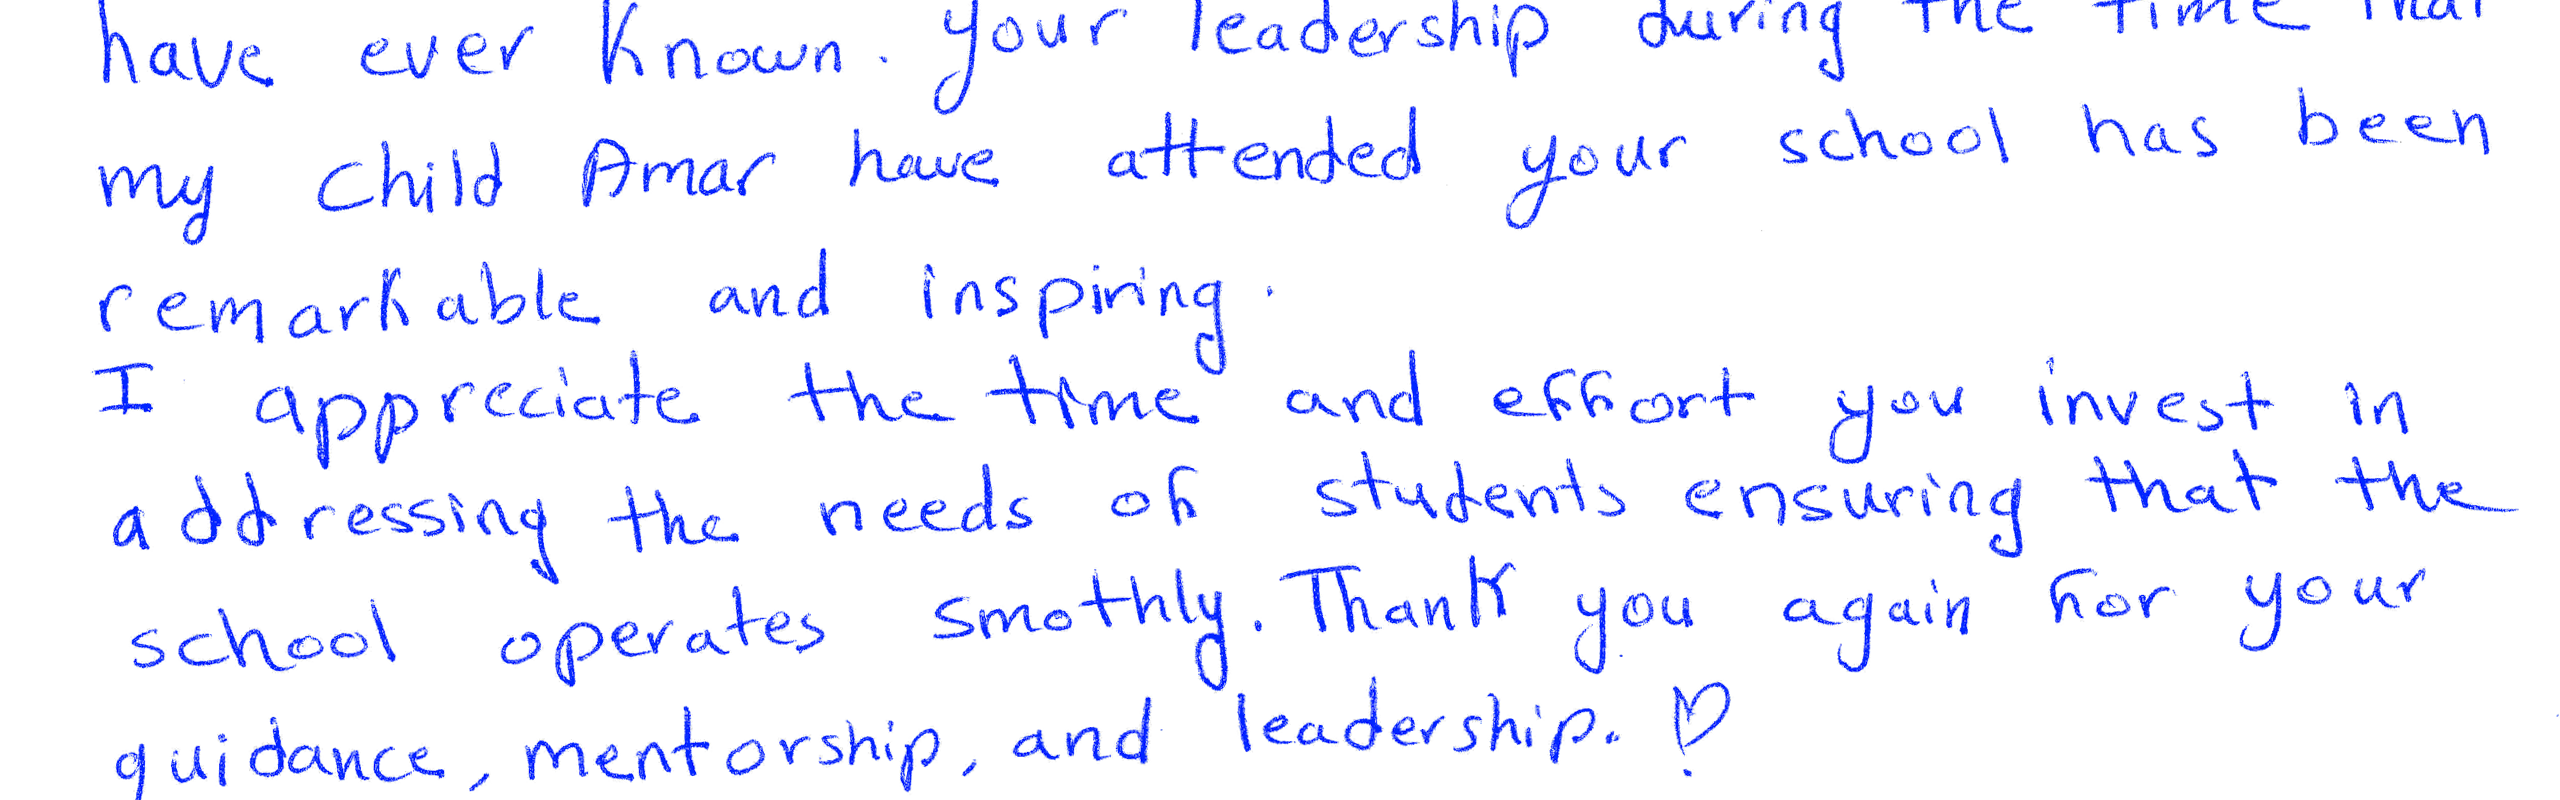 have ever known. your leadership during the time that
my child Amar have attended your school has been
remarkable and inspiring.
I appreciate the time and effort you invest in
addressing the needs of students ensuring that the
school operates smothly. Thank you again for your
guidance, mentorship, and leadership. ♡